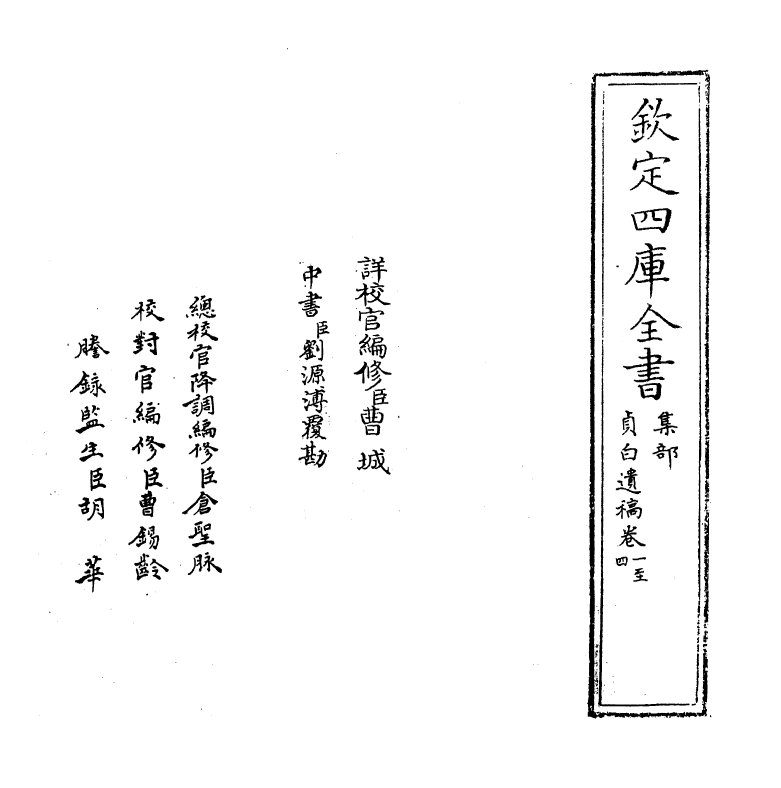 欽定四庫全書
集部
貞白遺稿卷一至四
詳校官編修臣曹城
中書臣劉源溥覆勘
總校官降調編修臣倉聖脉
校對官編修臣曹錫齡
謄錄監生臣胡華